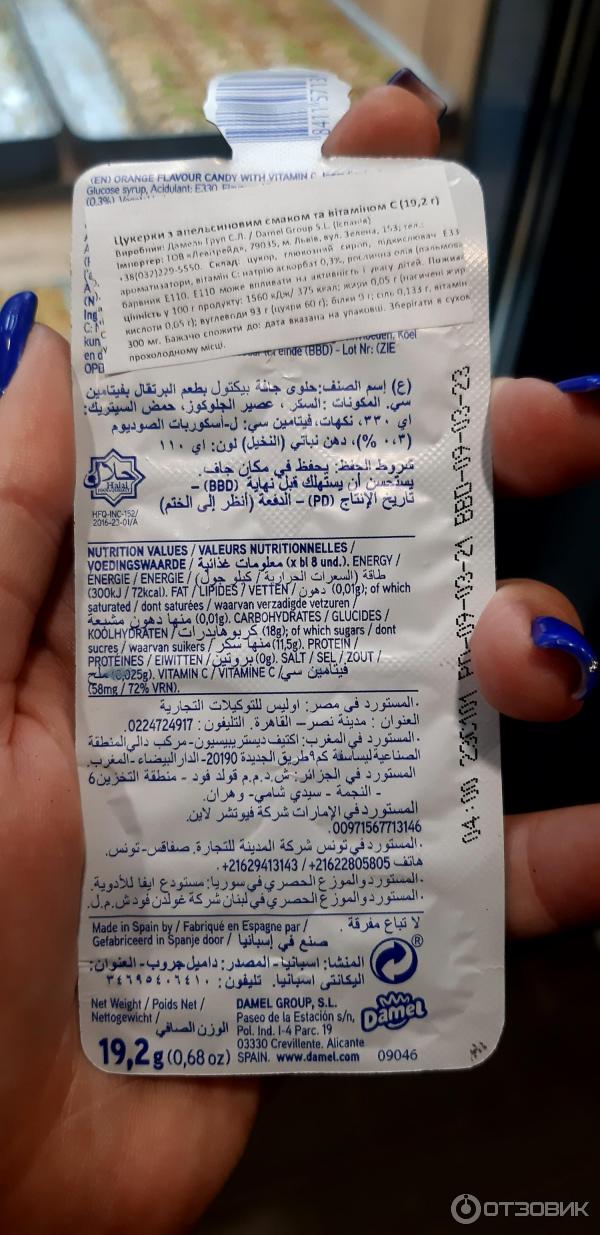 8411157
(EN) ORANGE FLAVOUR CANDY WITH VITAMIN C.
Glucose syrup, Acidulant: E330
(0.3%)
Цукерки з апельсиновим смаком та вітаміном С (19,2 г)
Виробник: Дамель Груп С.Л. / Damel Group S.L. (Іспанія)
Імпортер: ТОВ «Левтрейд», 79035, м. Львів, вул. Зелена, 153; тел.:
+38(037)229-5550. Склад: цукор, глюкозний сироп, підкислювач Е33
ароматизатори, вітамін С: натрію аскорбат 0,3%, рослинна олія (пальмов
барвник Е110. Е110 може впливати на активність і увагу дітей. Поживн
цінність у 100 г продукту: 1560 кДж/ 375 ккал; жири 0,05 г (насичені жир
кислоти 0,05 г); вуглеводи 93 г (цукри 60 г); білки 0 г; сіль 0,133 г, вітамін
300 мг. Бажано спожити до: дата вказана на упаковці. Зберігати в сухом
прохолодному місці.
einde (BBD) - Lot Nr: (ZIE
OPD
(ع) إسم الصنف: حلوى جافة بيكتول بطعم البرتقال بفيتامين
سي. المكونات: السكر، عصير الجلوكوز، حمض الستريك:
اي ٣٣٠، نكهات، فيتامين سي: ل-أسكوربات الصوديوم
(٠,٣ %)، دهن نباتي (النخيل) لون: اي ١١٠
شروط الحفظ: يحفظ في مكان جاف.
يستحسن أن يستهلك قبل نهاية (BBD) –
تاريخ الإنتاج (PD) – الدفعة (أنظر إلى الختم)
حلال
Halal
HFQ-INC-152/
2016-23-01/A
NUTRITION VALUES / VALEURS NUTRITIONNELLES /
VOEDINGSWAARDE / معلومات غذائية (x bl 8 und.). ENERGY /
ÉNERGIE / ENERGIE / طاقة (السعرات الحرارية / كيلو جول)
(300kJ / 72kcal). FAT / LIPIDES / VETTEN / دهون (0,01g); of which
saturated / dont saturées / waarvan verzadigde vetzuren /
منها دهون مشبعة (0,01g). CARBOHYDRATES / GLUCIDES /
KOOLHYDRATEN / كربوهايدرات (18g); of which sugars / dont
sucres / waarvan suikers / منها سكر (11,5g). PROTEIN /
PROTÉINES / EIWITTEN / بروتين (0g). SALT / SEL / ZOUT /
ملح (0,025g). VITAMIN C / VITAMINE C / فيتامين سي
(58mg / 72% VRN).
المستورد في مصر: اوليس للتوكيلات التجارية
العنوان : مدينة نصر – القاهرة. التليفون : 0224724917.
المستورد في المغرب: اكتيف ديستريبيسيون- مركب دالي المنطقة
الصناعية ليساسفة كم٩ طريق الجديدة 20190- الدار البيضاء - المغرب.
المستورد في الجزائر: ش.ذ.م.م قولد فود - منطقة التخزين 6
- النجمة - سيدي شامي- وهران.
المستورد في الإمارات شركة فيوتشر لاين.
00971567713146.
المستورد في تونس شركة المدينة للتجارة. صفاقس-تونس.
هاتف 21622805805+ / 21629413143+.
المستورد و الموزع الحصري في سوريا: مستودع ايفا للأدوية.
المستورد و الموزع الحصري في لبنان شركة غولدن فود ش.م.ل.
لا تباع مفرقة .
Made in Spain by / Fabriqué en Espagne par /
Gefabriceerd in Spanje door / صنع في إسبانيا
المنشا: اسبانيا- المصدر: داميل جروب- العنوان:
اليكانتي اسبانيا. تليفون: ٣٤٦٩٥٤٠٦٤١٠
Net Weight / Poids Net /
Nettogewicht /
الوزن الصافي
19,2g (0,68 oz)
DAMEL GROUP, S.L.
Paseo de la Estación s/n,
Pol. Ind. I-4 Parc. 19
03330 Crevillente. Alicante
SPAIN. www.damel.com 09046
®
Damel
BBD-09-03-23
PD-09-03-21
ОТЗОВИК